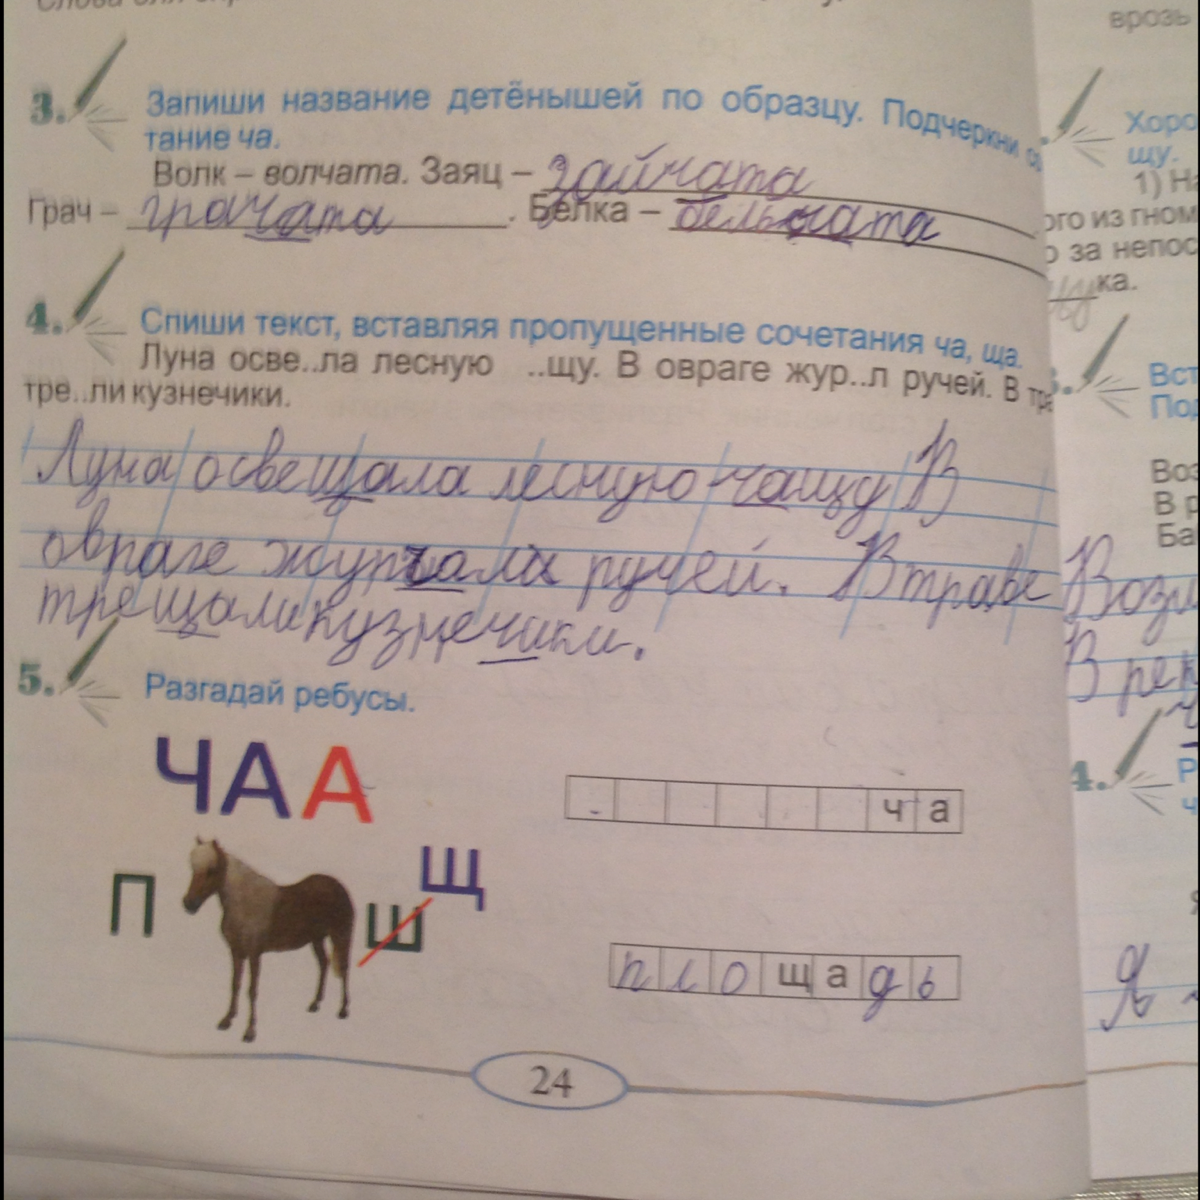 3. Запиши название детёнышей по образцу. Подчеркни
тание ча.
Волк – волчата. Заяц – зайчата
Грач – грачата. Белка – бельчата
4. Спиши текст, вставляя пропущенные сочетания ча, ща.
Луна осве..ла лесную ..щу. В овраге жур..л ручей. В тра
тре..ли кузнечики.
Луна освещала лесную чащу В
овраге журчала ручей. В траве
трещали кузнечики.
5. Разгадай ребусы.
ЧАА
ча
П Ш Щ
площадь
24
врозь
Хоро
щу.
1) На
ого из гном
о за непос
щука.
Вст
Под
Воз
В р
Ба
В рек
4.
Я